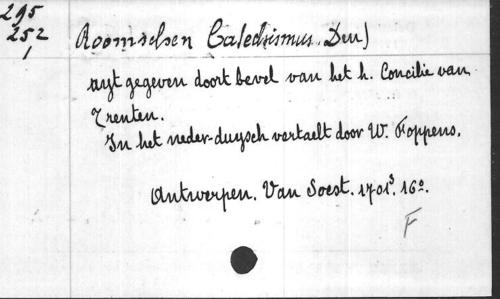 295
252
1
Roomschen Catechismus. Den)
uyt gegeven doort bevel van het h. Concilie van
Trenten.
In het neder-duysch vertaelt door W. Foppens.
Antwerpen. Van Soest. 1701³. 16°.
F